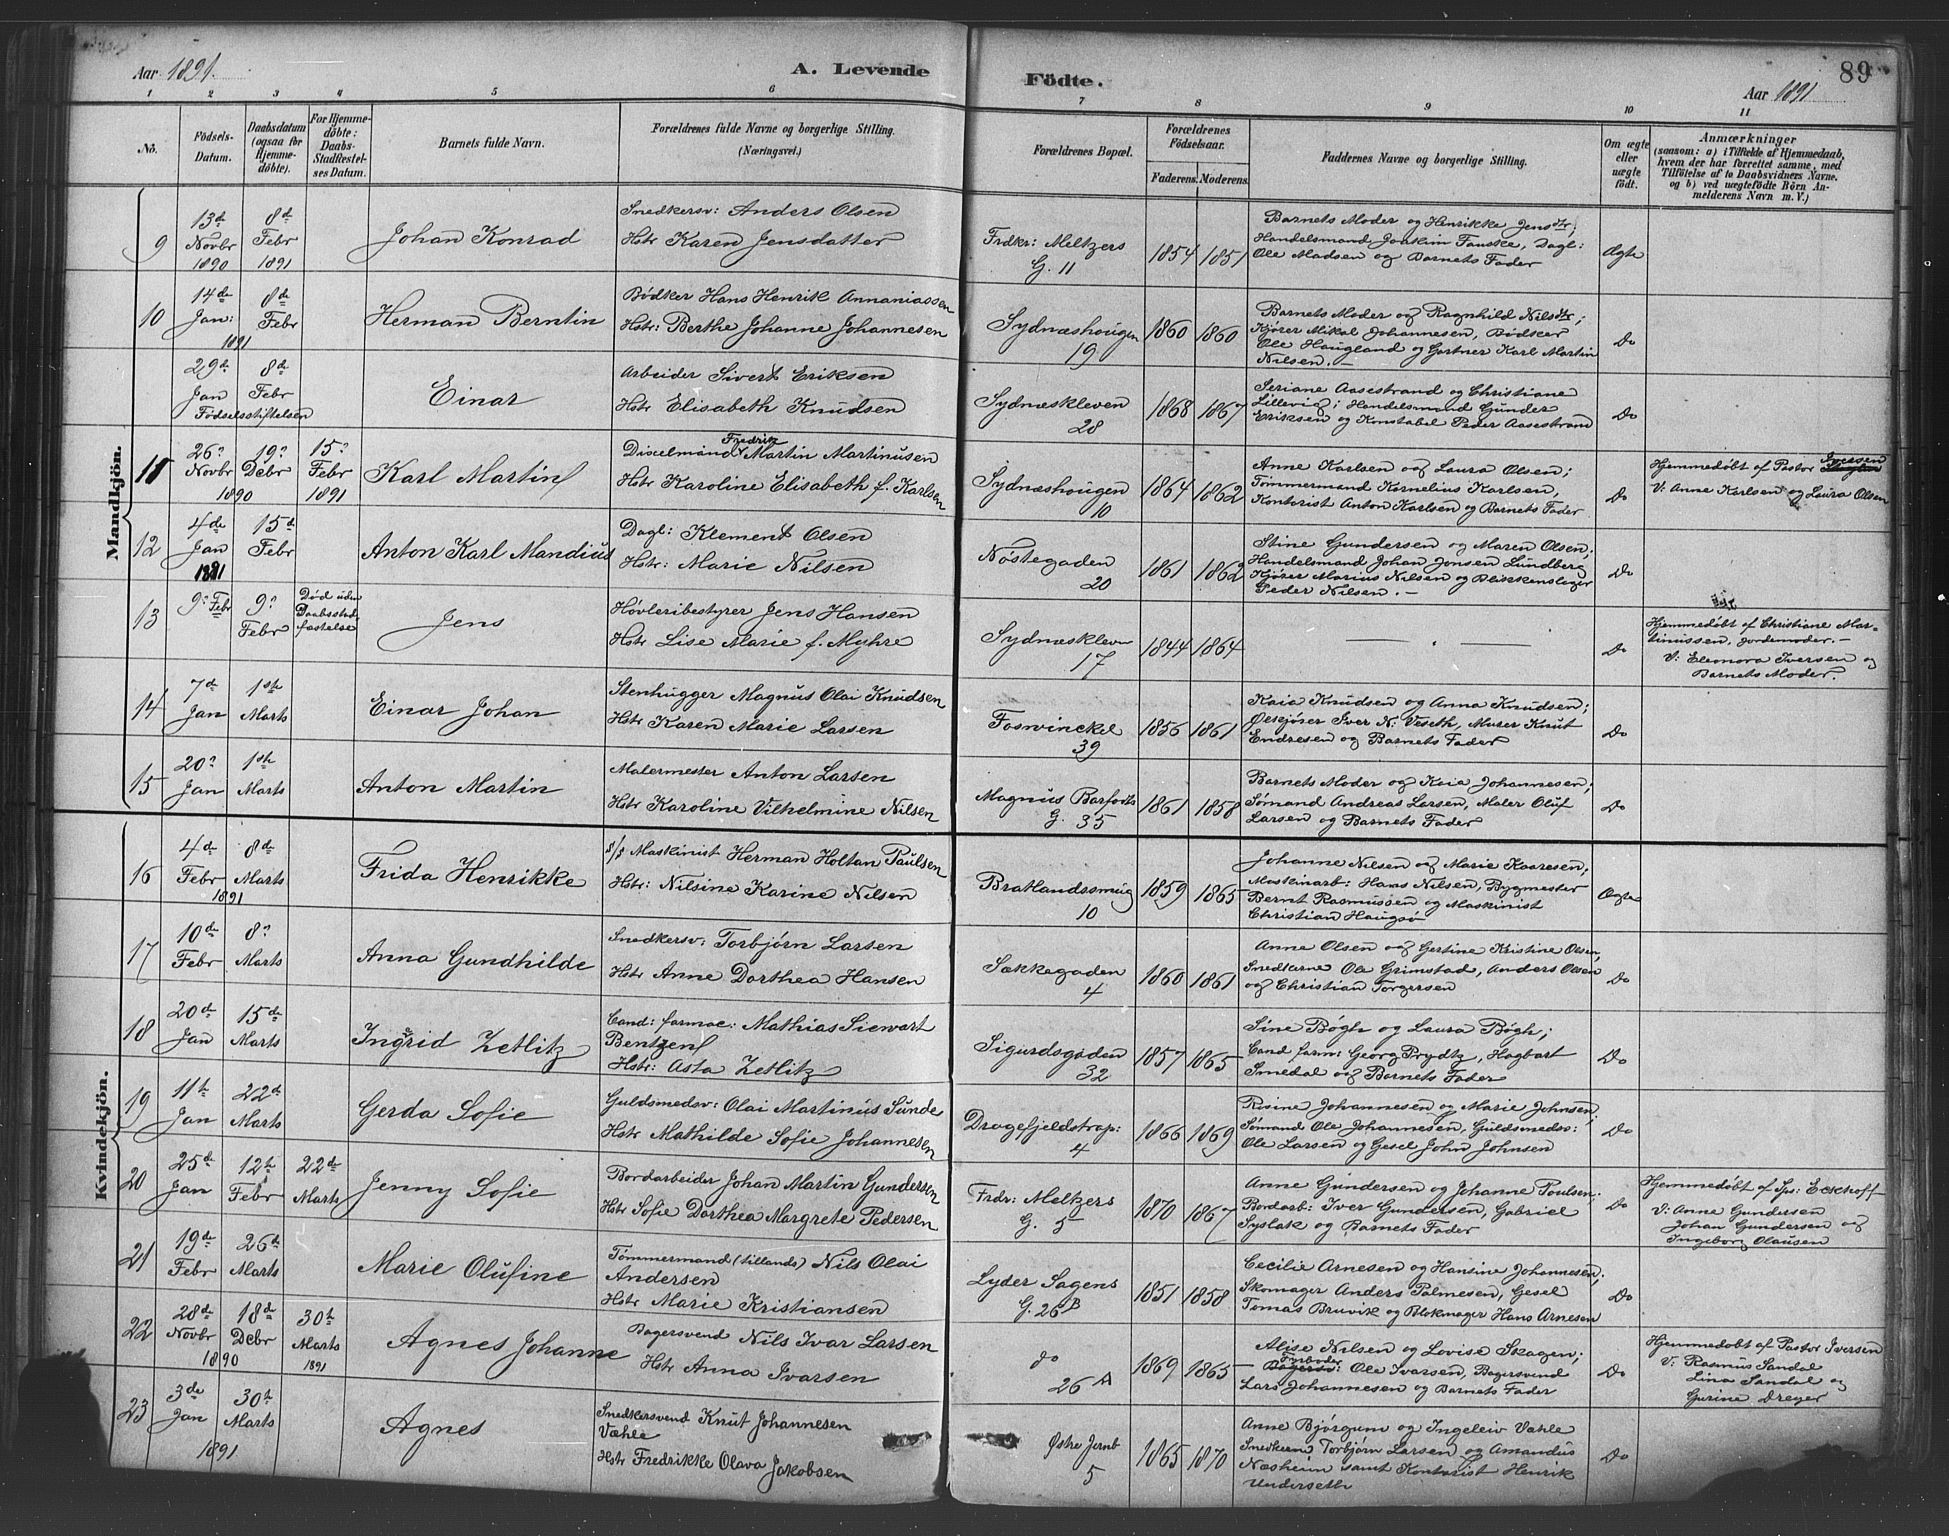 Aar 1891.
A. Levende
1 2 3 4 5 6
No.
Födsels-Datum.
Daabsdatum (ogsaa for Hjemme-döbte).
For Hjemme-döbte: Daabs-Stadfæstel-ses Datum.
Barnets fulde Navn.
Forældrenes fulde Navne og borgerlige Stilling. (Næringsvei.)
Födte.
89
Aar 1891
7 8 9 10 11
Forældrenes Bopæl.
Forældrenes Födselsaar.
Faderens. Moderens.
Faddernes Navne og borgerlige Stilling.
Om ægte eller uægte födt.
Anmærkninger
(saasom: a) i Tilfælde af Hjemmedaab, hvem der har forrettet samme, med Tilföielse af to Daabsvidners Navne, og b) ved uægtefödte Börn An-melderens Navn m. V.)
Mandkjön.
9
13de Novbr 1890
8de Febr 1891
Johan Konrad
Snedkersv: Anders Olsen
Hstr Karen Jensdatter
Frdkr: Meltzers
G. 11
1854 1851
Barnets Moder og Henrikke Jensdtr;
Handelsmand Joakim Fauske, Dagl:
Ole Madsen og Barnets Fader
Ægte
10
14de Jan: 1891
8de Febr
Herman Berntin
Bødker Hans Henrik Annaniassen
Hstr: Berthe Johanne Johannesen
Sydnæshougen
19
1860 1860
Barnets Moder og Ragnhild Nilsdtr;
Kjører Mikal Johannesen, Bødker
Ole Haugland og Gartner Karl Martin
Nilsen. —
Do
29de Jan
8de Febr
Födselsstiftelsen
Einar
Arbeider Sivert Eriksen
Hstr Elisabeth Knudsen
Sydnæskleven
28
1868 1867
Seriane Aasestrand og Christiane
Lillevig; Handelsmand Gunder
Eriksen og Konstabel Peder Aasestrand
Do
11
26? Novbr
19? Debr
1890
15? Febr 1891
Karl Martin
Fredrik
Martin Martinusen
Hstr Karoline Elisabeth f. Karlsen
Sydnæshougen
10
1864 1862
Anne Karlsen og Laura Olsen;
Tømmermand Kornelius Karlsen,
Kontorist Anton Karlsen og Barnets Fader
Do
Iversen
Hjemmedøbt af Pastor
V: Anne Karlsen og Laura Olsen
12
4de Jan 1891
15d Febr
Anton Karl Mandius
Dagl: Klement Olsen
Hstr: Marie Nilsen
Nøstegaden
20
1861 1862
Stine Gundersen og Maren Olsen;
Handelsmand Johan Jonsen Lundberg
Kjører Marius Nilsen og Blikkenslager
Peder Nilsen. —
Do
13
9? Febr
9? Febr
Død uden Daabsstad-fæstelse
Jens
Høvleribestyrer Jens Hansen
Hstr Lise Marie f. Myhre
Sydnæskleven
17
1844 1864
— — —
Do
Hjemmedøbt af Christiane Mar-
tinussen, Jordemoder. —
V: Eleonora Iversen og
Barnets Moder.
14
7de Jan
1ste Marts
Einar Johan
Stenhugger Magnus Olai Knudsen
Hstr Karen Marie Larsen
Fosvinckel
39
1856 1861
Kaia Knudsen og Anna Knudsen;
Iver N. Veseth, Murer Knut
Endresen og Barnets Fader
Do
15
20? Jan
1ste Marts
Anton Martin
Malermester Anton Larsen
Hstr Karoline Vilhelmine Nilsen
Magnus Barfodts
G. 35
1861 1858
Barnets Moder og Kaia Johannesen;
Sømand Andreas Larsen, Maler Oluf
Larsen og Barnets Fader
Do
Kvindekjön.
16
4de Febr 1891
8de Marts
Frida Henrikke
S/S Maskinist Herman Holtan Paulsen
Hstr: Nilsine Karine Nilsen
Bratlandssmug
10
1859 1865
Johanne Nilsen og Marie Kaaresen;
Maskinarb: Hans Nilsen, Bygmester
Bernt Rasmussen og Maskinist
Christian Haugsø
Ægte
17
10de Febr
8? Marts
Anna Gundhilde
Snedkersv: Torbjørn Larsen
Hstr Anne Dorthea Hansen
Sækkegaden
4
1860 1861
Anne Olsen og Gertine Kristine Olsen,
Snedkerne Ole Grimstad, Anders Olsen
og Christian Torgersen
Do
18
20de Jan
15de Marts
Ingrid Zetlitz
Cand: farmac: Mathias Siewart
Bentzen
Hstr: Asta Zetlitz
Sigurdsgaden
32
1857 1865
Sine Bøgh og Laura Bøgh;
Cand farm: Georg Prydtz, Hagbart
Smedal og Barnets Fader
Do
19
11te Jan
22d Marts
Gerda Sofie
Guldsmedsv: Olai Martinus Sunde
Hstr Mathilde Sofie Johannesen
Dragefjeldstrap:
4
1866 1869
Risine Johannesen og Marie Johnsen;
Sømand Ole Johannesen, Guldsmedsv:
Ole Larsen og Gesel John Johnsen
Do
20
25de Jan
12te Febr
22de Marts
Jenny Sofie
Bordarbeider Johan Martin Gundersen
Hstr Sofie Dorthea Margrete Pedersen
Frdr: Meltzers
G. 5
1870 1867
Anne Gundersen og Johanne Poulsen;
Bordarb: Iver Gundersen, Gabriel
Syslak og Barnets Fader
Do
Hjemmedøbt af Sps: Eckhoff
V: Anne Gundersen
Johan Gundersen og
Ingeborg Olausen
21
19de Febr
26de Marts
Marie Olufine
Tømmermand (tillands) Nils Olai
Andersen
Hstr Marie Kristiansen
Lyder Sagens
G. 26 B
1851 1858
Cecilie Arnesen og Hansine Johannesen;
Skomager Anders Palmesen, Gesel
Tomas Bruvik og Blokmager Hans Arnesen
Do
22
28de Novbr
18de Debr
1890
30te Marts 1891
Agnes Johanne
Bagersvend Nils Ivar Larsen
Hstr Anna Ivarsen
do
26 A
1869 1865
Alise Nilsen og Lovise Skagen;
Ole Ivarsen, Bagersvend
Lars Johannesen og Barnets Fader
Do
Hjemmedøbt af Pastor Iversen
V: Rasmus Sandal
Lina Sandal og
Gurine Dreyer
23
3de Jan
30te Marts
1891
Agnes
Snedkersvend Knut Johannesen
Væhle
Hstr Fredrikke Olava Jakobsen
Østre Jernb
5
1865 1870
Anne Bjørgum og Ingeleiv Væhle
Snedkerne Torbjørn Larsen og Amandus
Næsheim samt Kontorist Henrik
Underseth
Do